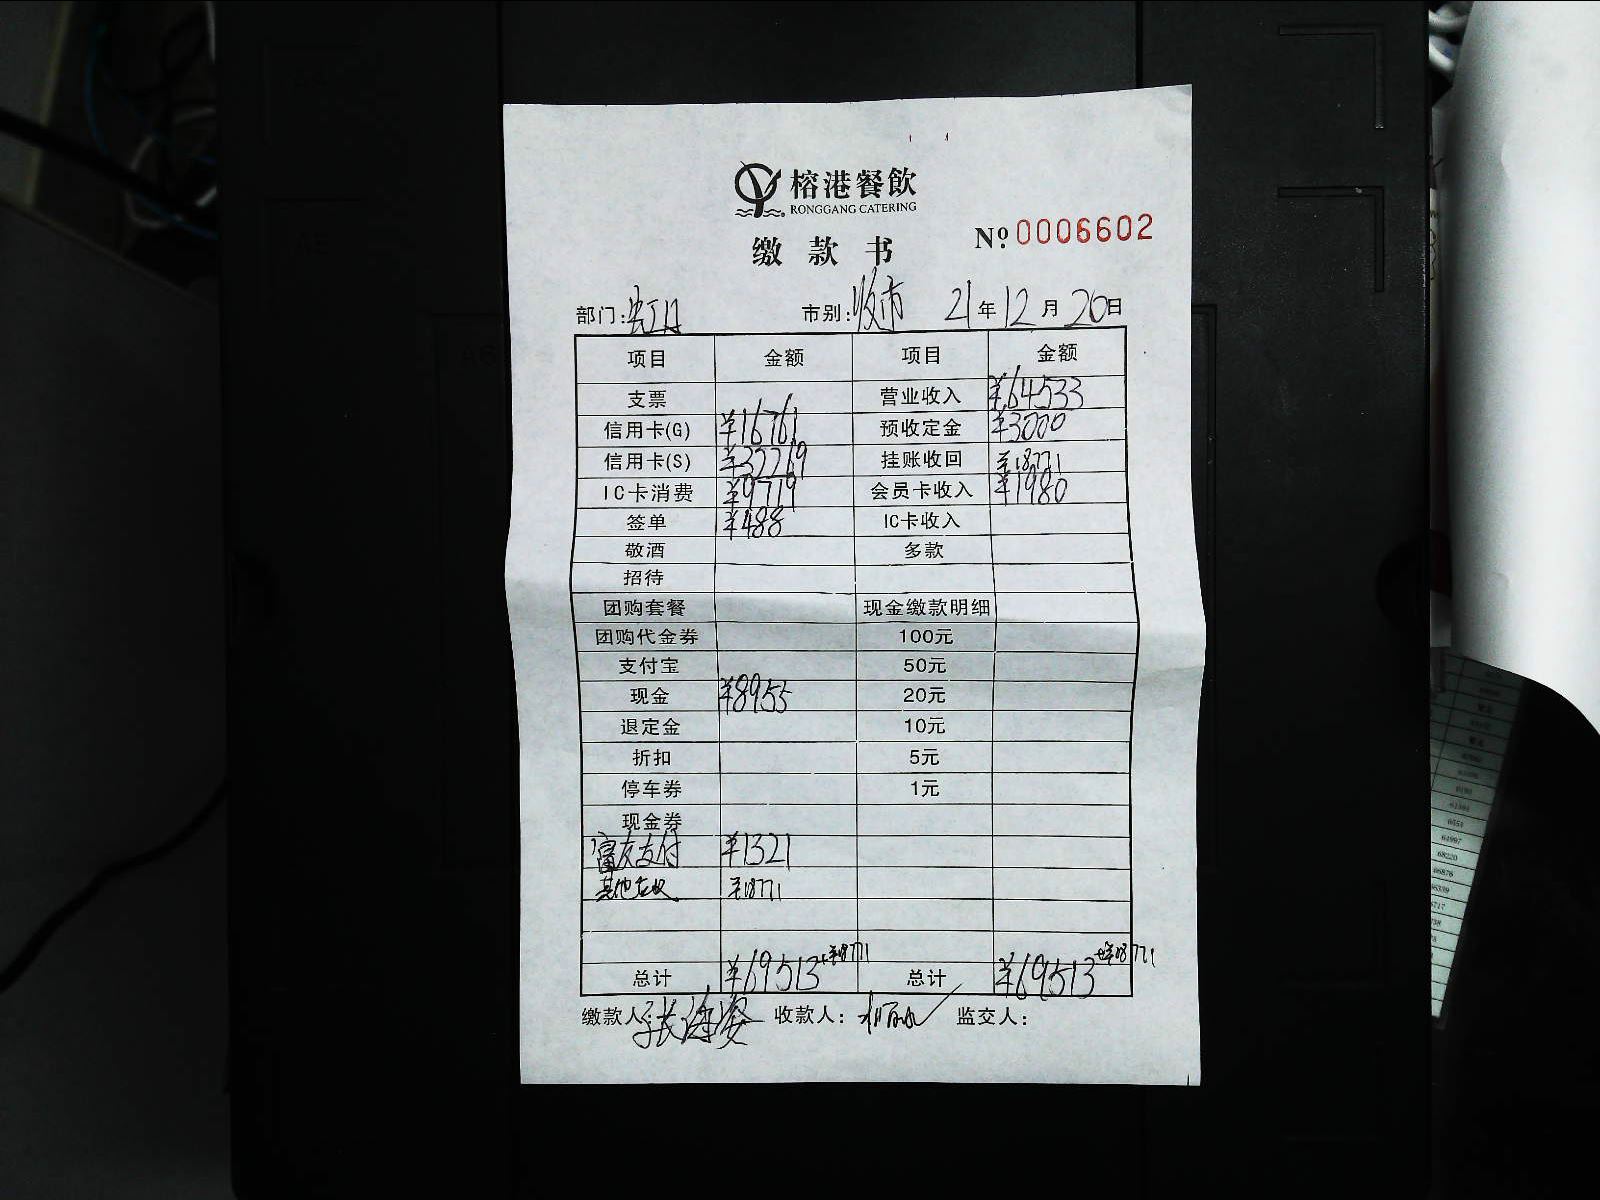 榕港餐飲
RONGGANG CATERING
缴款书 № 0006602
部门:虹口 市别:收市 21年12月20日
项目 金额 项目 金额
支票 营业收入 ¥64533
信用卡(G) ¥16761 预收定金 ¥3000
信用卡(S) ¥32269 挂账收回 ¥18771
IC卡消费 ¥9719 会员卡收入 ¥1980
签单 ¥488 IC卡收入
敬酒 多款
招待
团购套餐 现金缴款明细
团购代金券 100元
支付宝 50元
现金 ¥8955 20元
退定金 10元
折扣 5元
停车券 1元
现金券
富友支付 ¥1321
其他应收 ¥18771
总计 ¥69513+¥18771 总计 ¥69513+¥18771
缴款人:张海姿 收款人: 监交人: